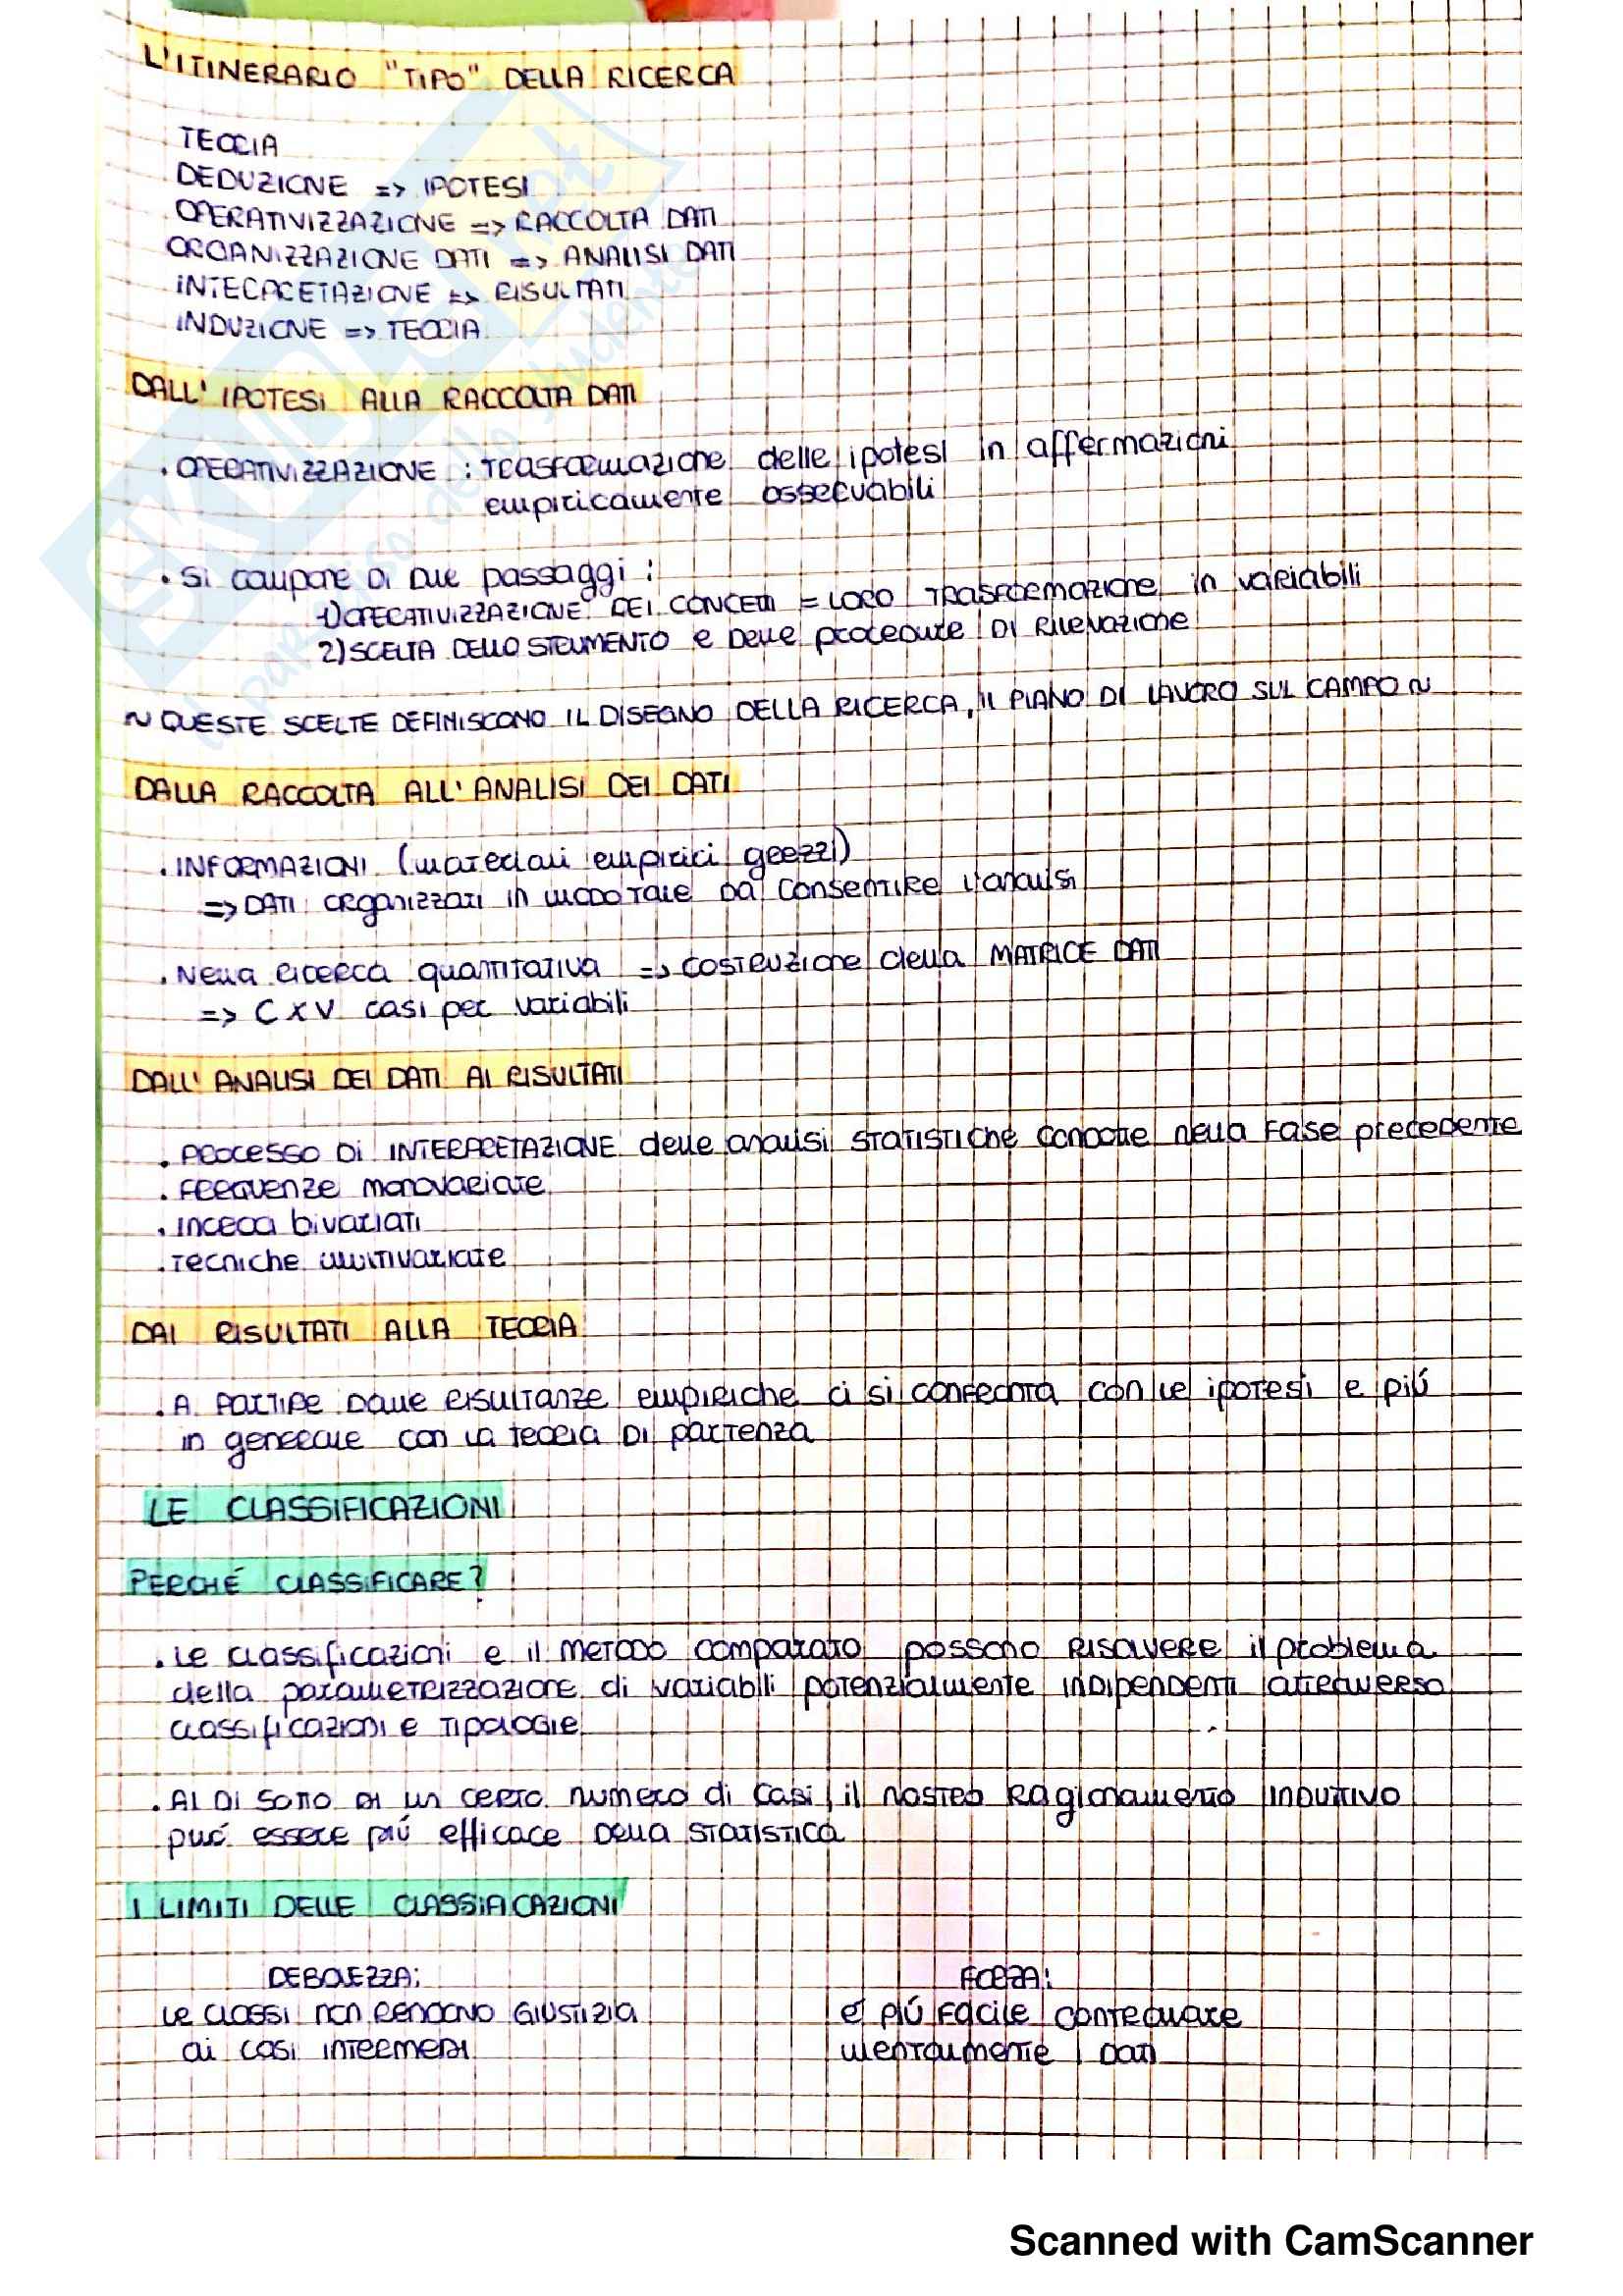 L'ITINERARIO "TIPO" DELLA RICERCA
TEORIA
DEDUZIONE => IPOTESI
OPERATIVIZZAZIONE => RACCOLTA DATI
ORGANIZZAZIONE DATI => ANALISI DATI
INTERPRETAZIONE => RISULTATI
INDUZIONE => TEORIA
DALL'IPOTESI ALLA RACCOLTA DATI
. OPERATIVIZZAZIONE : TRASFORMAZIONE delle ipotesi in affermazioni
empiricamente osservabili
. Si compone di due passaggi :
1) OPERATIVIZZAZIONE DEI CONCETTI = LORO TRASFORMAZIONE in variabili
2) SCELTA DELLO STRUMENTO e delle procedure DI RILEVAZIONE
~ QUESTE SCELTE DEFINISCONO IL DISEGNO DELLA RICERCA, IL PIANO DI LAVORO SUL CAMPO ~
DALLA RACCOLTA ALL'ANALISI DEI DATI
. INFORMAZIONI (materiali empirici grezzi)
=> DATI organizzati in modo tale da consentire l'analisi
. Nella ricerca quantitativa => costruzione della MATRICE DATI
=> C X V casi per variabili
DALL'ANALISI DEI DATI AI RISULTATI
. PROCESSO DI INTERPRETAZIONE delle analisi STATISTICHE condotte nella FASE precedente
. FREQUENZE monovariate
. incroci bivariati
. Tecniche multivariate
DAI RISULTATI ALLA TEORIA
. A PARTIRE DALLE RISULTANZE empiriche ci si confronta con le ipotesi e più
in generale con la teoria DI partenza
LE CLASSIFICAZIONI
PERCHÉ CLASSIFICARE?
. Le classificazioni e il METODO comparato possono RISOLVERE il problema
della parametrizzazione di variabili potenzialmente INDIPENDENTI attraverso
classificazioni e TIPOLOGIE
. AL DI SOTTO DI un CERTO numero di casi, il nostro Ragionamento INDUTTIVO
può essere più efficace DELLA STATISTICA
I LIMITI DELLE CLASSIFICAZIONI
DEBOLEZZA:
Le CLASSI non RENDONO GIUSTIZIA
ai casi INTERMEDI
FORZA:
È PIÙ FACILE CONTROLLARE
MENTALMENTE I DATI
Scanned with CamScanner